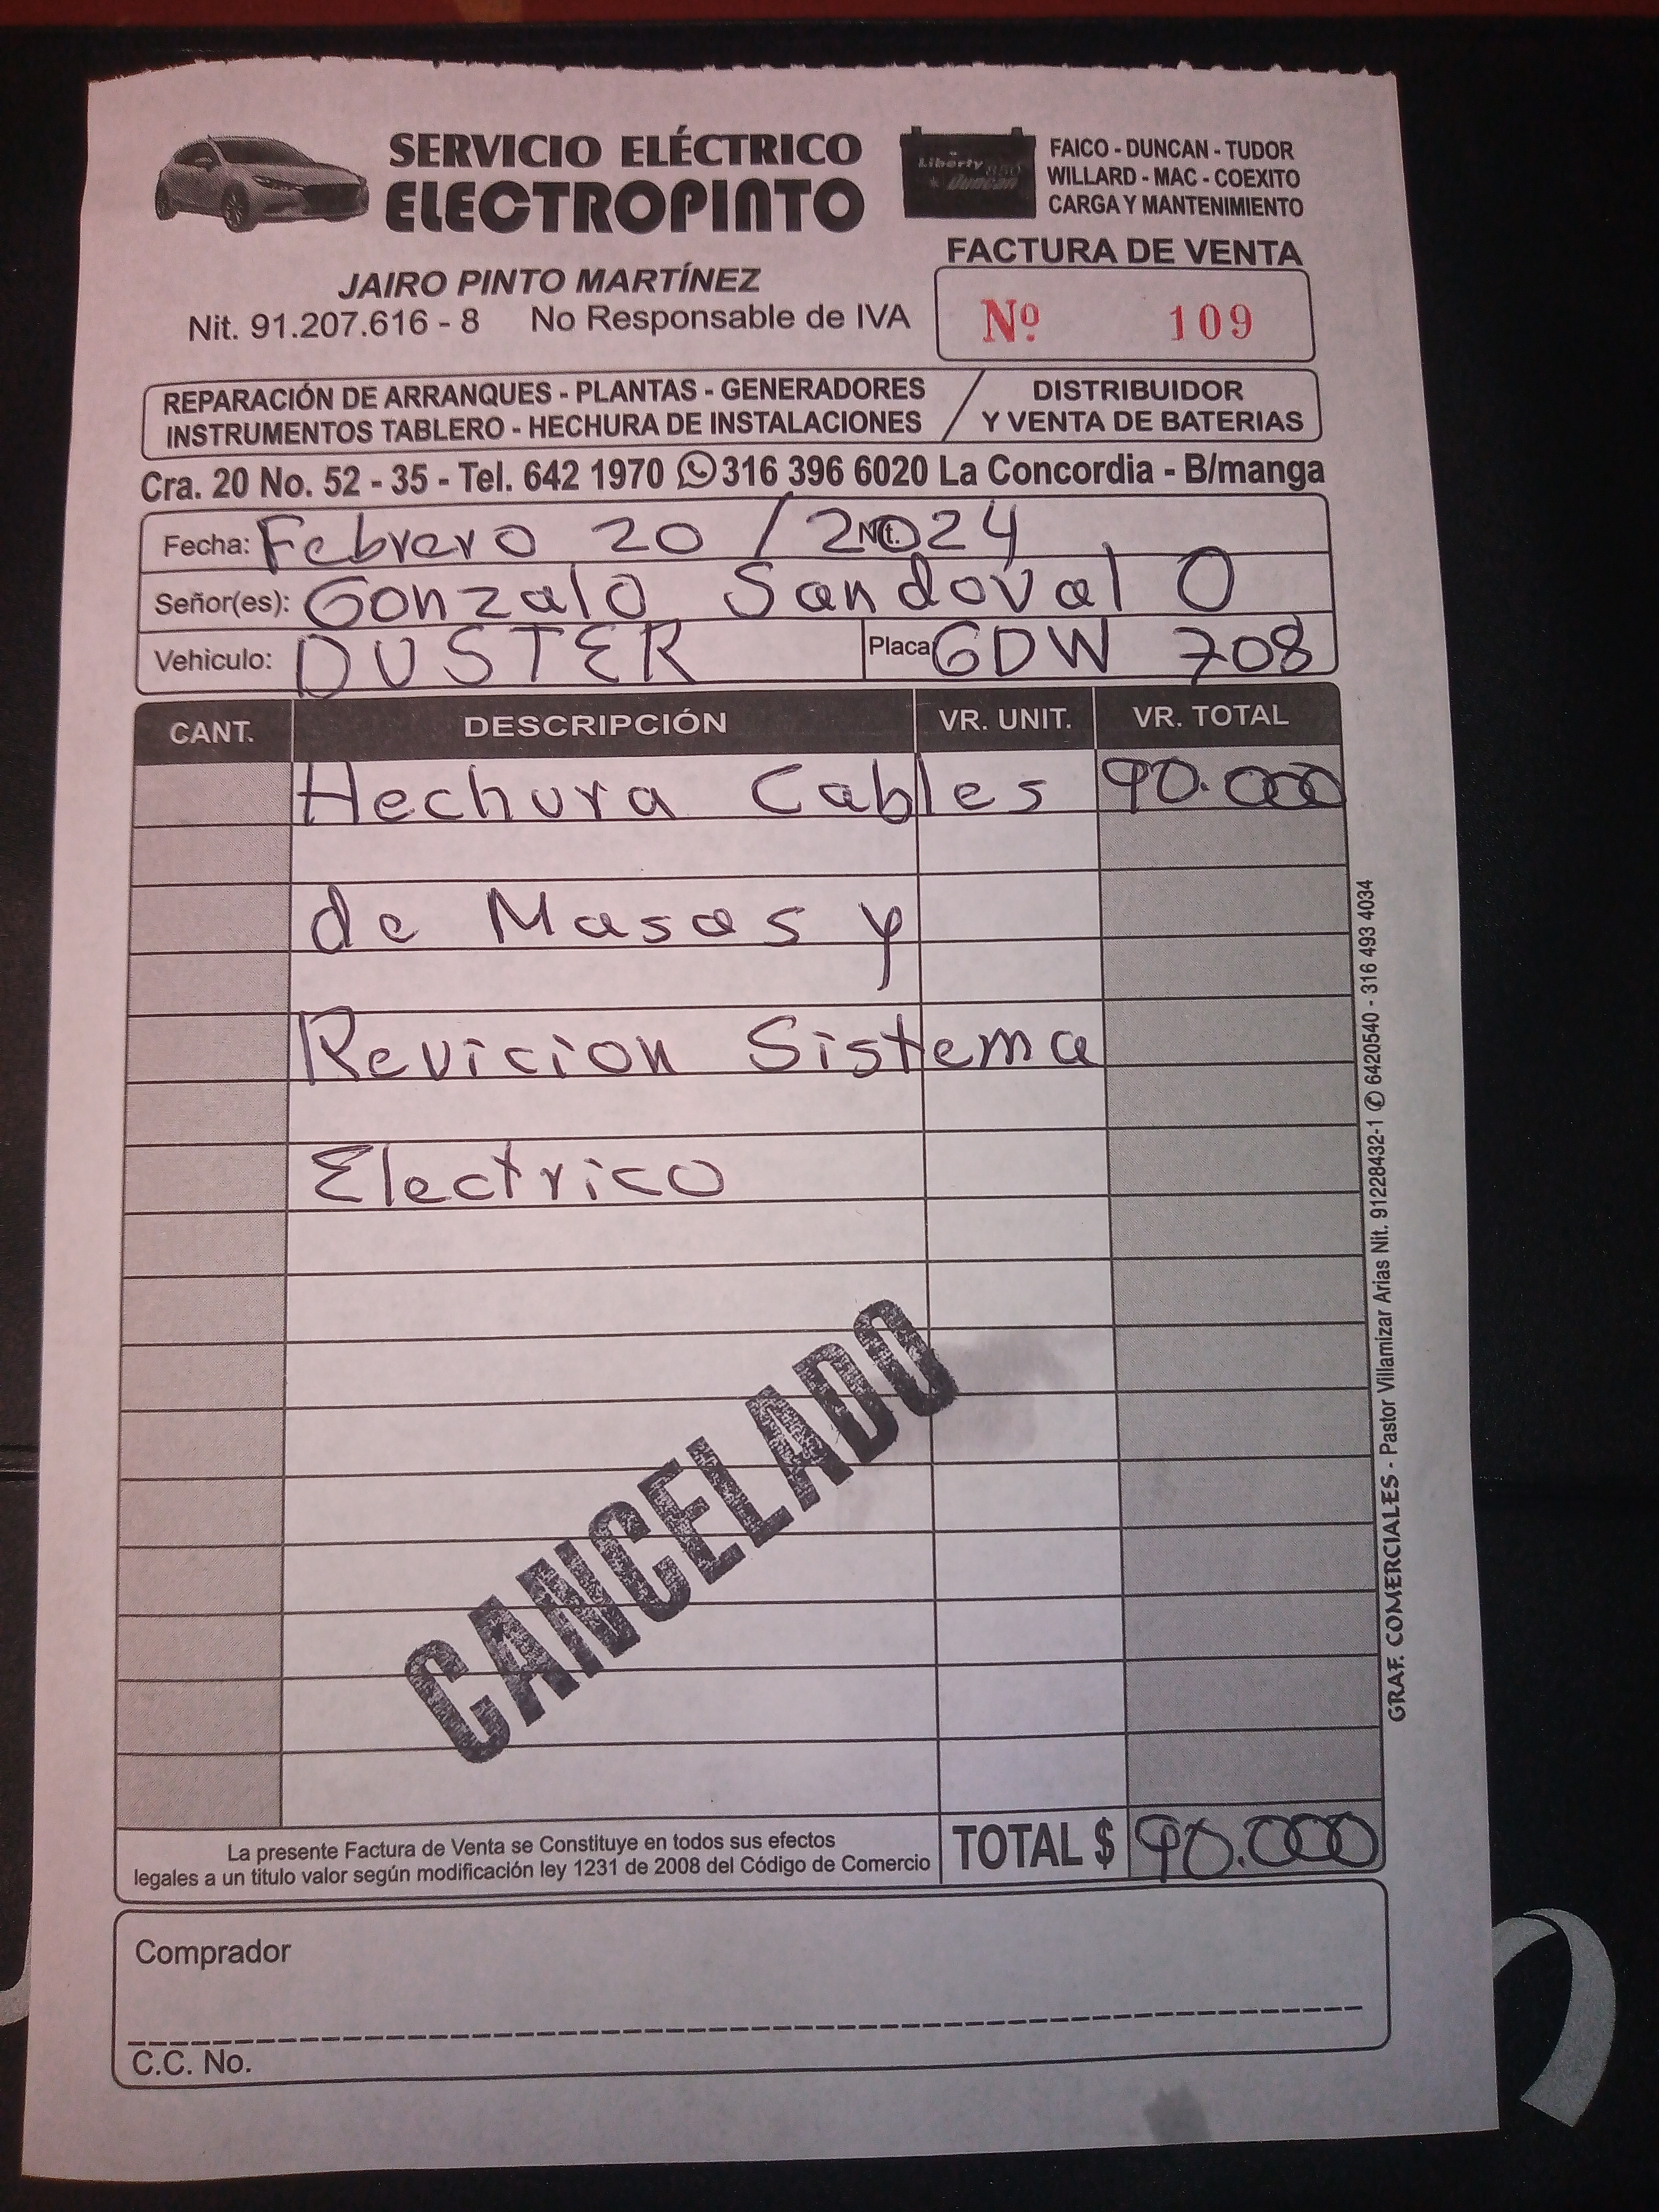 SERVICIO ELÉCTRICO
ELECTROPINTO
Liberty 850
Duncan
FAICO - DUNCAN - TUDOR
WILLARD - MAC - COEXITO
CARGA Y MANTENIMIENTO
FACTURA DE VENTA
Nº 109
JAIRO PINTO MARTÍNEZ
Nit. 91.207.616 - 8 No Responsable de IVA
REPARACIÓN DE ARRANQUES - PLANTAS - GENERADORES
INSTRUMENTOS TABLERO - HECHURA DE INSTALACIONES
DISTRIBUIDOR
Y VENTA DE BATERIAS
Cra. 20 No. 52 - 35 - Tel. 642 1970 316 396 6020 La Concordia - B/manga
Fecha: Febrero 20 / 2024 Nit.
Señor(es): Gonzalo Sandoval O
Vehiculo: DUSTER Placa GDW 708
CANT. DESCRIPCIÓN VR. UNIT. VR. TOTAL
Hechura Cables 90.000
de Masas y
Revicion Sistema
Electrico
CANCELADO
La presente Factura de Venta se Constituye en todos sus efectos
legales a un titulo valor según modificación ley 1231 de 2008 del Código de Comercio
TOTAL $ 90.000
Comprador
C.C. No.
GRAF. COMERCIALES - Pastor Villamizar Arias Nit. 91228432-1 6420540 - 316 493 4034